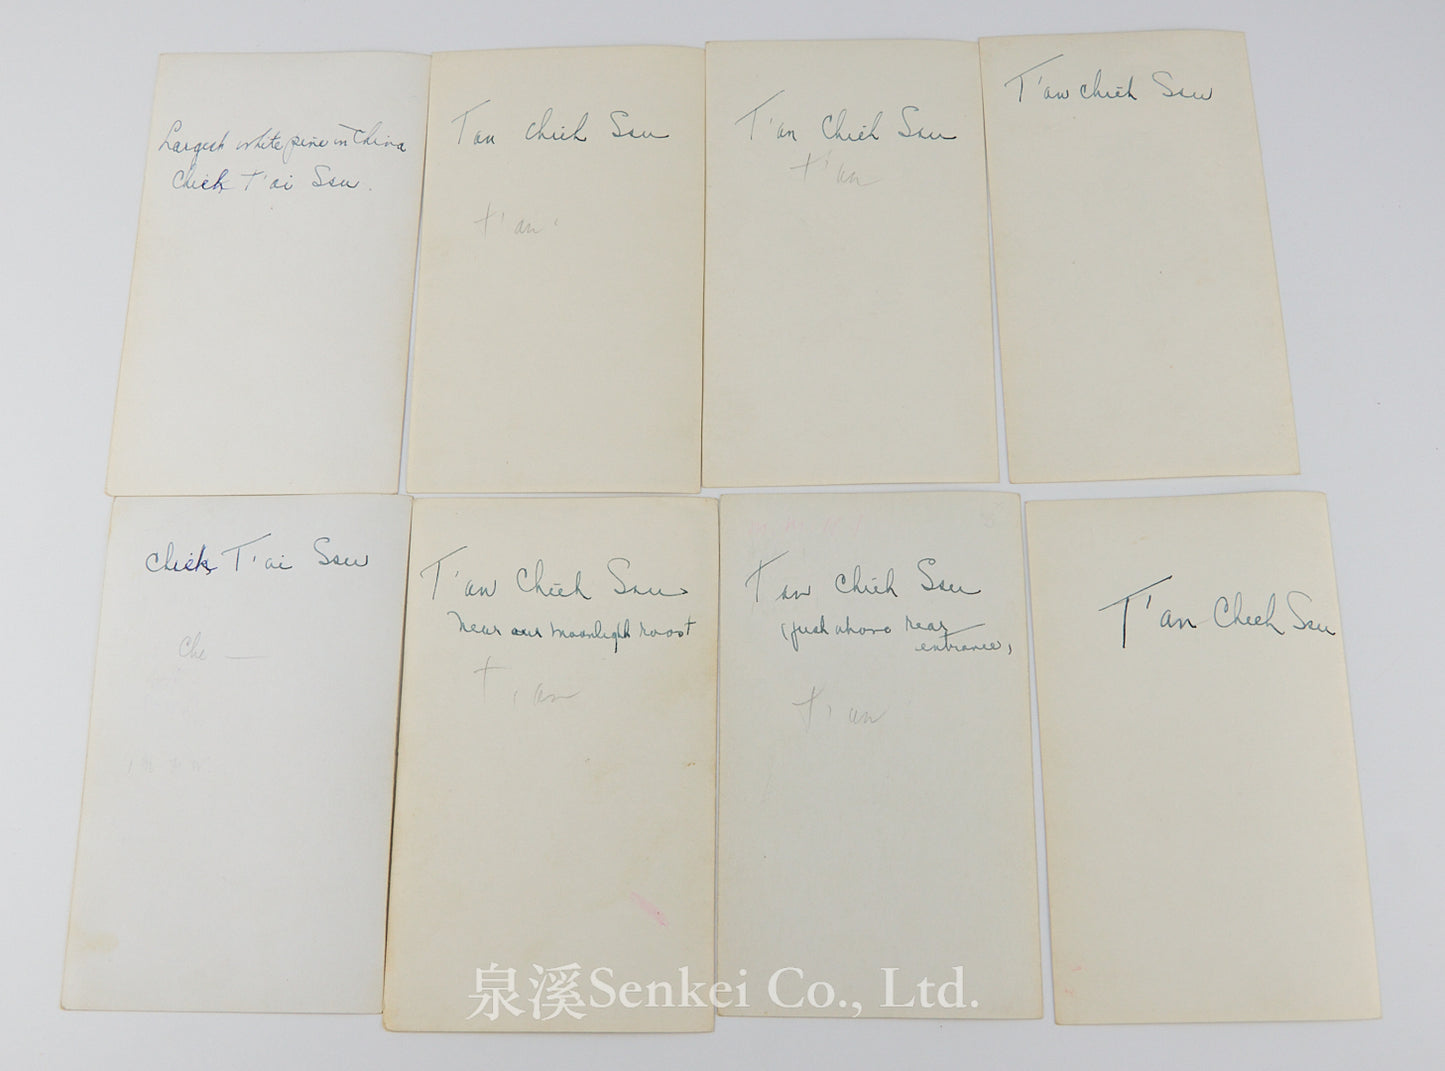 Largest white pine in China
Chieh T'ai Ssu.
Tan Chieh Ssu
t'an
T'an Chieh Ssu
t'an
T'an Chieh Ssu
Chieh T'ai Ssu
Che —
T'an Chieh Ssu
near our moonlight roost
t'an
T'an Chieh Ssu
(just above rear
entrance,
t'an
T'an Chieh Ssu
泉溪Senkei Co., Ltd.